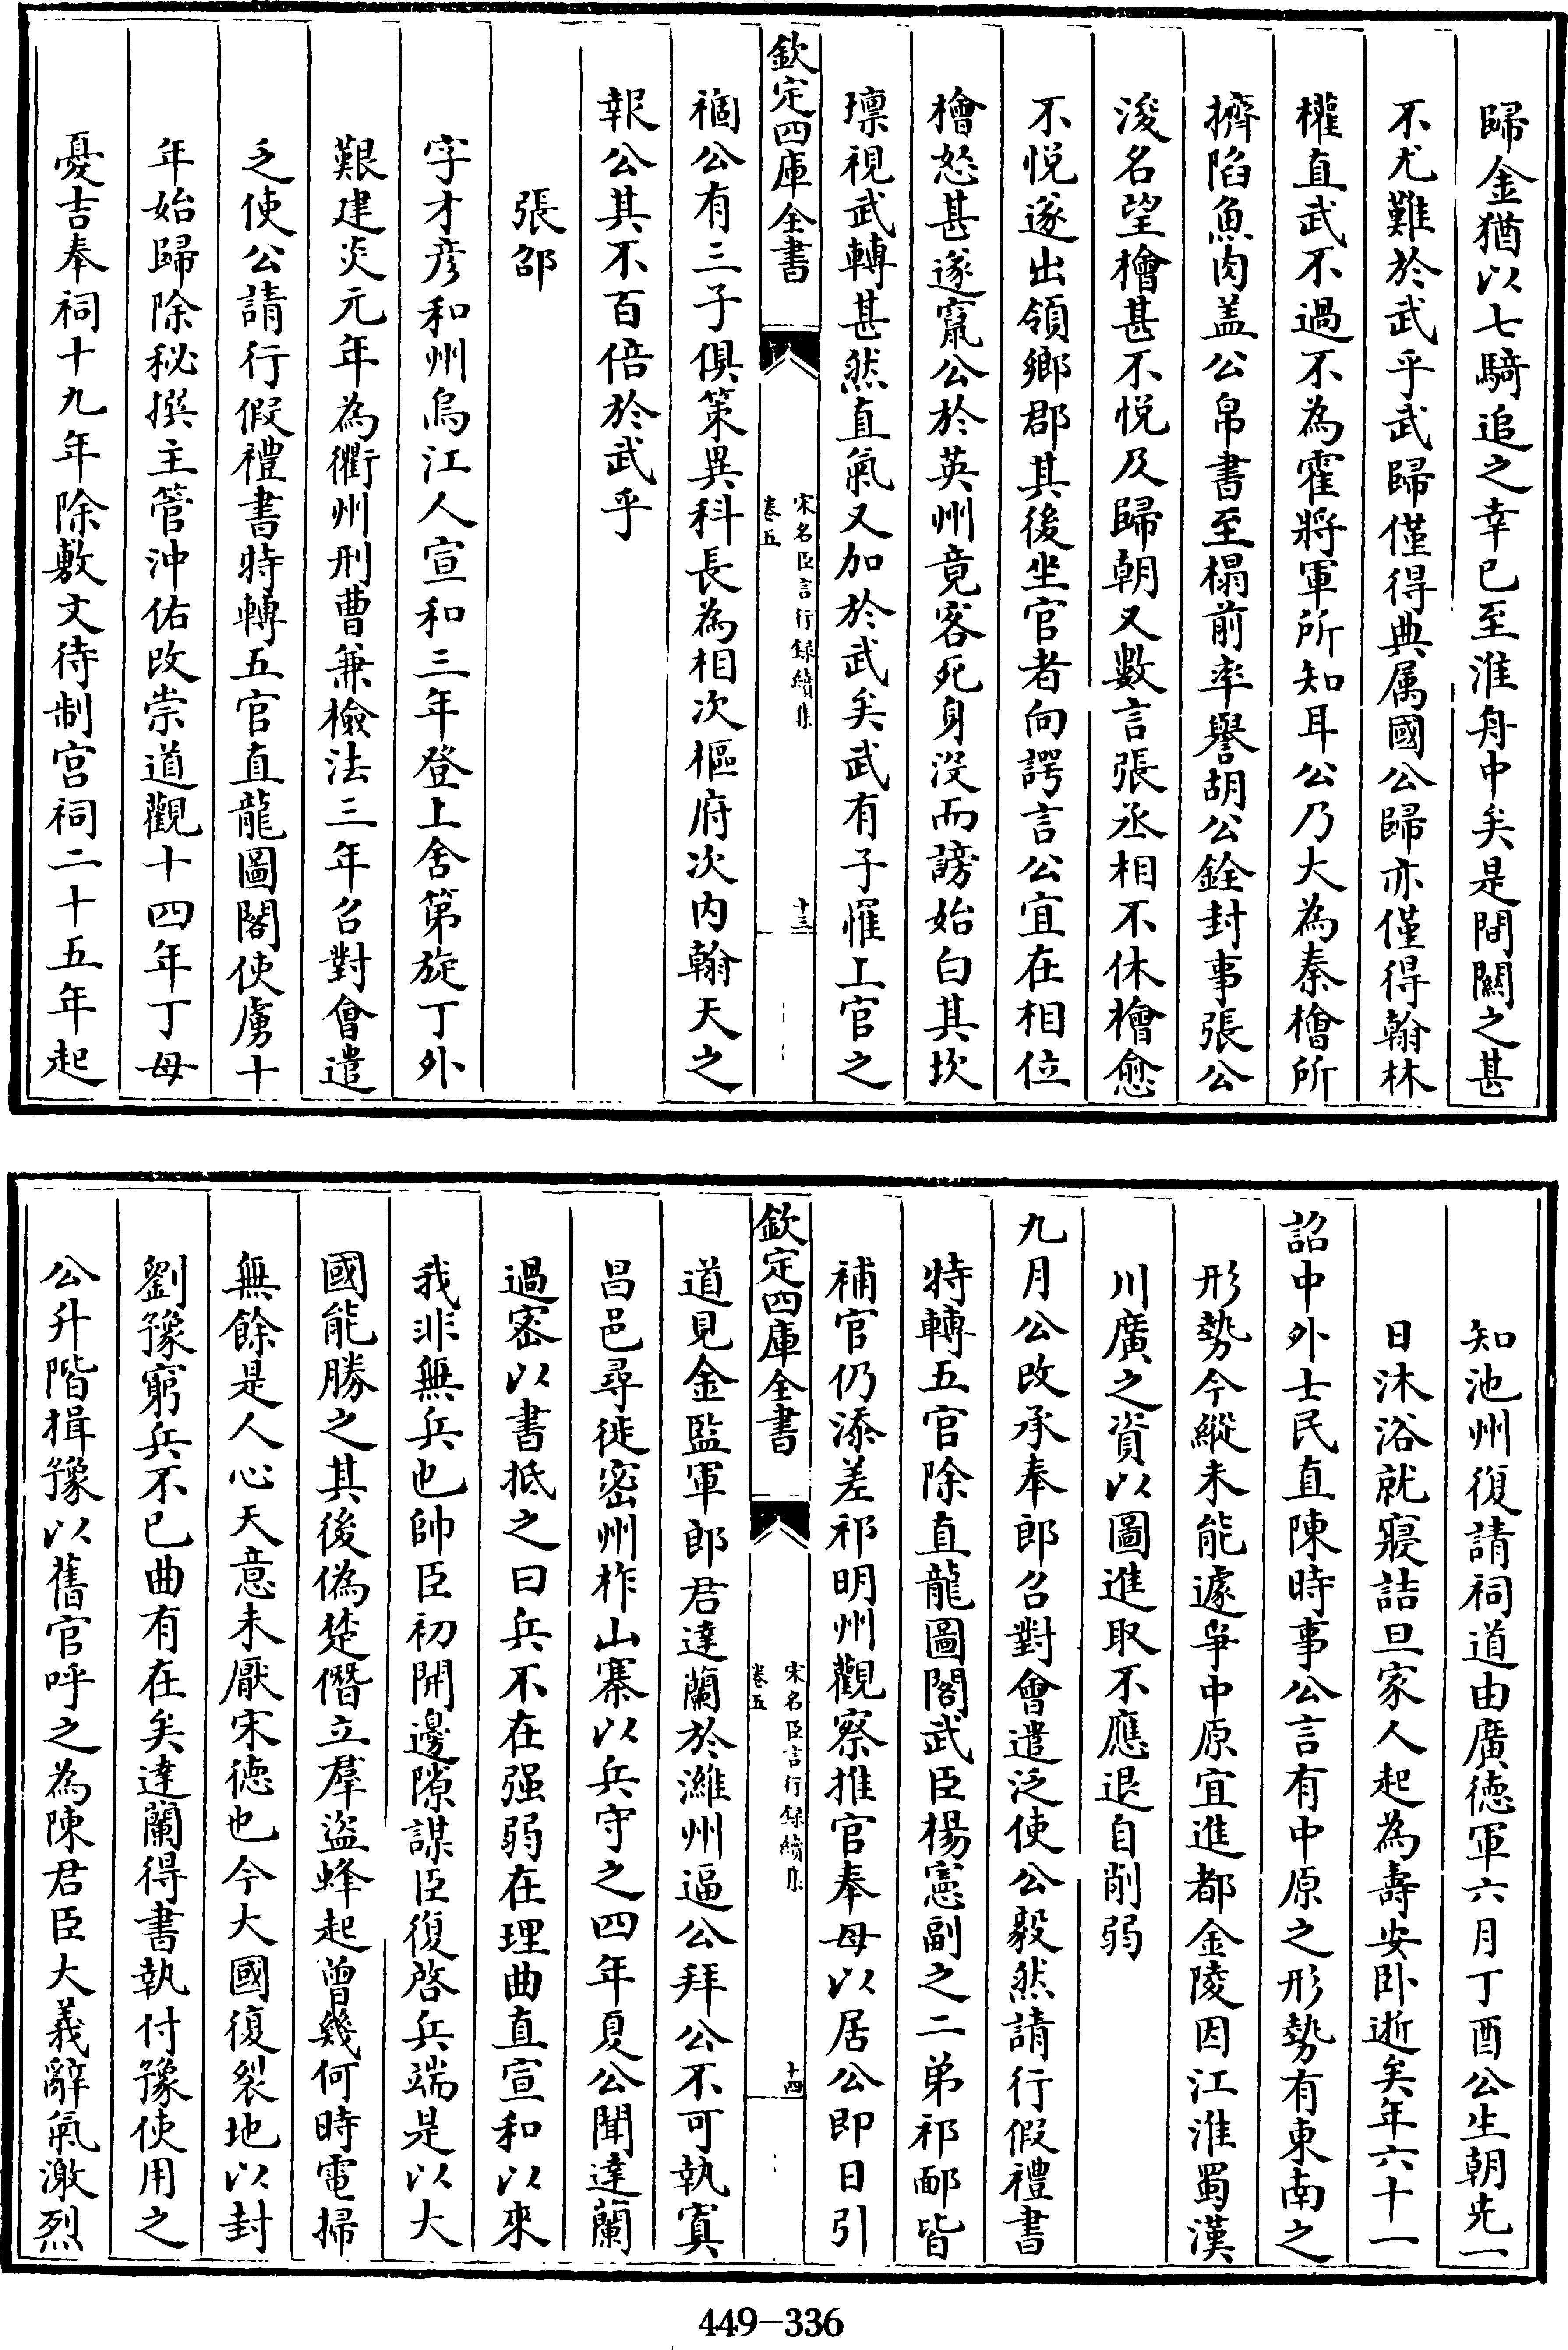 歸金猶以七騎追之幸已至淮舟中矣是間關之甚
不尤難於武乎武歸僅得典属國公歸亦僅得翰林
權直武不過不為霍將軍所知耳公乃大為秦檜所
擠陷魚肉盖公帛書至榻前率譽胡公銓封事張公
浚名望檜甚不悦及歸朝又數言張丞相不休檜愈
不悦遂出領鄉郡其後坐官者向諤言公宜在相位
檜怒甚遂竄公於英州竟客死身没而謗始白其坎
壈視武轉甚然直氣又加於武矣武有子罹上官之
欽定四庫全書
宋名臣言行録續集
卷五
十三
禍公有三子俱策異科長為相次樞府次内翰天之
報公其不百倍於武乎
張邵
字才彦和州烏江人宣和三年登上舍第旋丁外
艱建炎元年為衢州刑曹兼檢法三年召對會遣
乏使公請行假禮書特轉五官直龍圖閣使虜十
年始歸除秘撰主管沖佑改崇道觀十四年丁母
憂吉奉祠十九年除敷文待制宫祠二十五年起
知池州復請祠道由廣徳軍六月丁酉公生朝先一
日沐浴就寢詰旦家人起為壽安卧逝矣年六十一
詔中外士民直陳時事公言有中原之形勢有東南之
形勢今縱未能遽爭中原宜進都金陵因江淮蜀漢
川廣之資以圖進取不應退自削弱
九月公改承奉郎召對會遣泛使公毅然請行假禮書
特轉五官除直龍圖閣武臣楊憲副之二弟祁郙皆
補官仍添差祁明州觀察推官奉母以居公即日引
欽定四庫全書
宋名臣言行録續集
卷五
十四
道見金監軍郎君達蘭於濰州逼公拜公不可執寘
昌邑尋徙密州柞山寨以兵守之四年夏公聞達蘭
過密以書抵之曰兵不在强弱在理曲直宣和以來
我非無兵也帥臣初開邊隙謀臣復啓兵端是以大
國能勝之其後偽楚僭立羣盜蜂起曾幾何時電掃
無餘是人心天意未厭宋徳也今大國復裂地以封
劉豫窮兵不已曲有在矣達蘭得書執付豫使用之
公升階揖豫以舊官呼之為陳君臣大義辭氣激烈
449-336